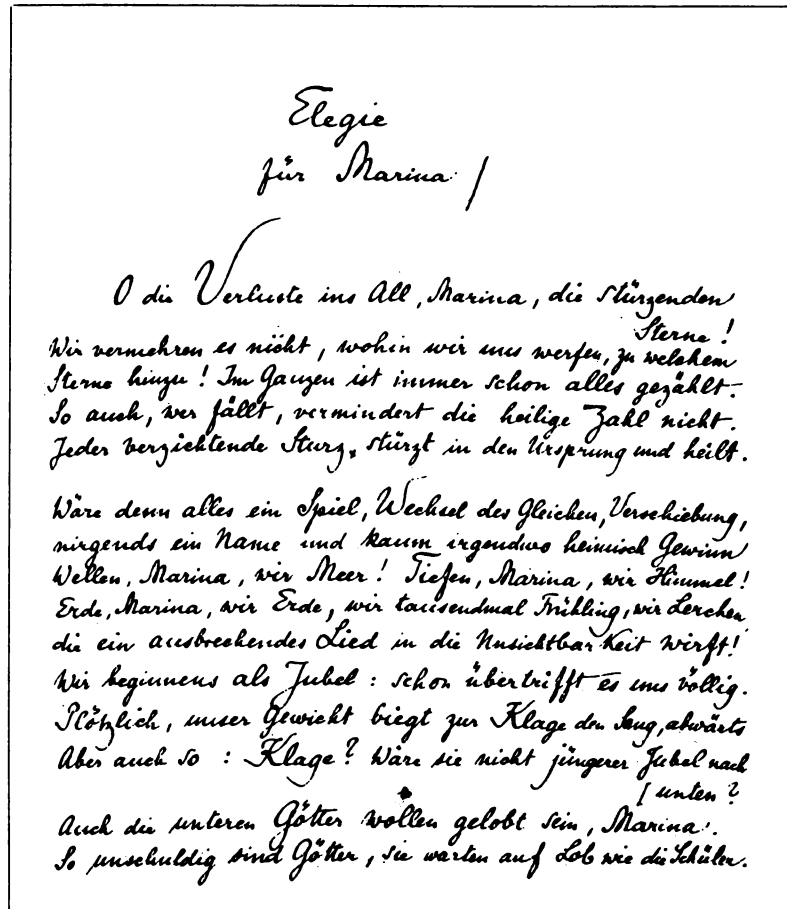 Elegie
für Marina /
O die Verluste ins All, Marina, die stürzenden
Sterne!
Wir vermehren es nicht, wohin wir uns werfen, zu welchem
Sterne hinzu! Im Ganzen ist immer schon alles gezählt.
So auch, wer fällt, vermindert die heilige Zahl nicht.
Jeder verzichtende Sturz, stürzt in den Ursprung und heilt.
Wäre denn alles ein Spiel, Wechsel des Gleichen, Verschiebung,
nirgends ein Name und kaum irgendwo heimisch Gewinn
Wellen, Marina, wir Meer! Tiefen, Marina, wir Himmel!
Erde, Marina, wir Erde, wir tausendmal Frühling, wir Lerchen
die ein ausbrechendes Lied in die Unsichtbarkeit wirft!
Wir beginnens als Jubel: schon übertrifft es uns völlig.
Plötzlich, unser Gewicht biegt zur Klage den Sang, abwärts
Aber auch so: Klage? Wäre sie nicht jüngerer Jubel nach
/ unten?
Auch die unteren Götter wollen gelobt sein, Marina.
So unschuldig sind Götter, sie warten auf Lob wie die Schüler.